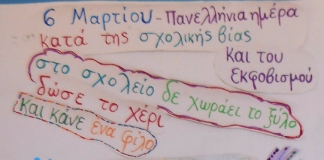 6 Μαρτίου - Πανελλήνια ημέρα
κατά της σχολικής βίας
και του
Εκφοβισμού
στο σχολείο δε χωράει το ξύλο
δώσε το χέρι
και κάνε ένα φίλο